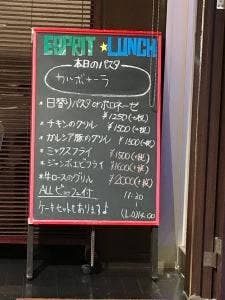 ESPRIT★LUNCH
本日のパスタ
カルボナーラ
*日替りパスタorボロネーゼ
¥1250(+税)
*チキンのグリル ¥1500(+税)
*ガルシア豚のグリル ¥1500(+税)
*ミックスフライ ¥1500(+税)
*ジャンボエビフライ ¥1600(+税)
*牛ロースのグリル ¥2000(+税)
ALLビュッフェ付 11:30
ケーキセットもあります♪ (L.O)14:00